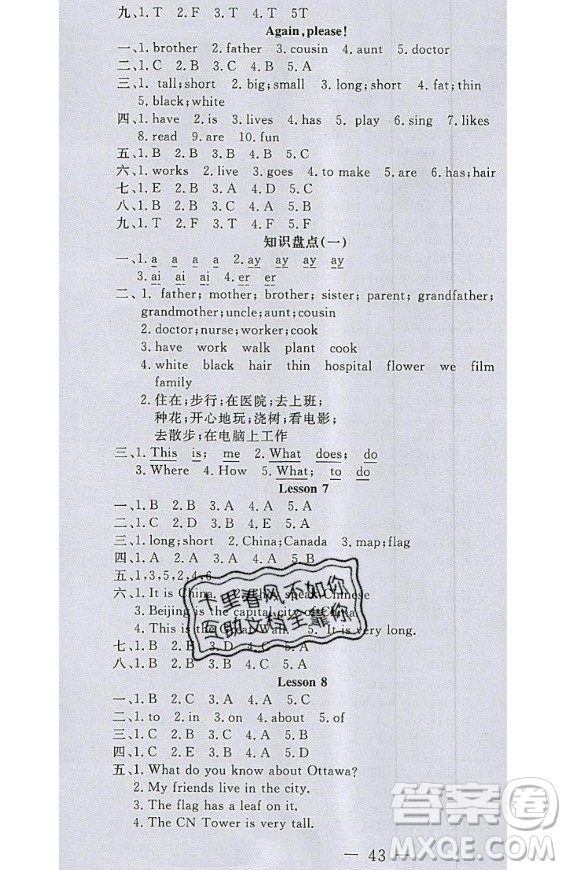 九、1. T 2. F 3. T 4. T 5T
Again, please!
一、1. brother 2. father 3. cousin 4. aunt 5. doctor
二、1. B 2. B 3. C 4. C 5. A
三、1. tall;short 2. big;small 3. long;short 4. fat;thin
5. black;white
四、1. have 2. is 3. lives 4. has 5. play 6. sing 7. likes
8. read 9. are 10. fun
五、1. B 2. B 3. B 4. B 5. C
六、1. works 2. live 3. goes 4. to make 5. are 6. has;hair
七、1. E 2. B 3. A 4. D 5. C
八、1. C 2. B 3. A 4. A 5. C
九、1. T 2. F 3. T 4. F 5. F
知识盘点(一)
一、1. a a a a 2. ay ay ay ay
3. ai ai ai 4. er er
二、1. father; mother; brother; sister; parent; grandfather;
grandmother;uncle;aunt;cousin
2. doctor;nurse;worker;cook
3. have work walk plant cook
4. white black hair thin hospital flower we film
family
2. 住在;步行;在医院;去上班;
种花;开心地玩;浇树;看电影;
去散步;在电脑上工作
三、1. This is; me 2. What does; do
3. Where 4. How 5. What; to do
Lesson 7
一、1. B 2. B 3. A 4. A 5. A
二、1. C 2. D 3. B 4. E 5. A
三、1. long;short 2. China;Canada 3. map;flag
四、1. A 2. A 3. A 4. A 5. A
五、1,3,5,2,4,6
六、1. It is China. 2. They speak Chinese
3. Beijing is the capital city of China.
4. This is the Great Wall. 5. It is red.
七、1. B 2. D 3. C 4. A
八、1. B 2. C 3. A
下里春风不如你
互助文档全靠你
Lesson 8
一、1. B 2. C 3. A 4. A 5. C
二、1. to 2. in 3. on 4. about 5. of
三、1. C 2. A 3. B 4. C
四、1. D 2. C 3. E 4. A 5. B
五、1. What do you know about Ottawa?
2. My friends live in the city.
3. The flag has a leaf on it.
4. The CN Tower is very tall.
— 43 —
答案圈
MXQE.COM